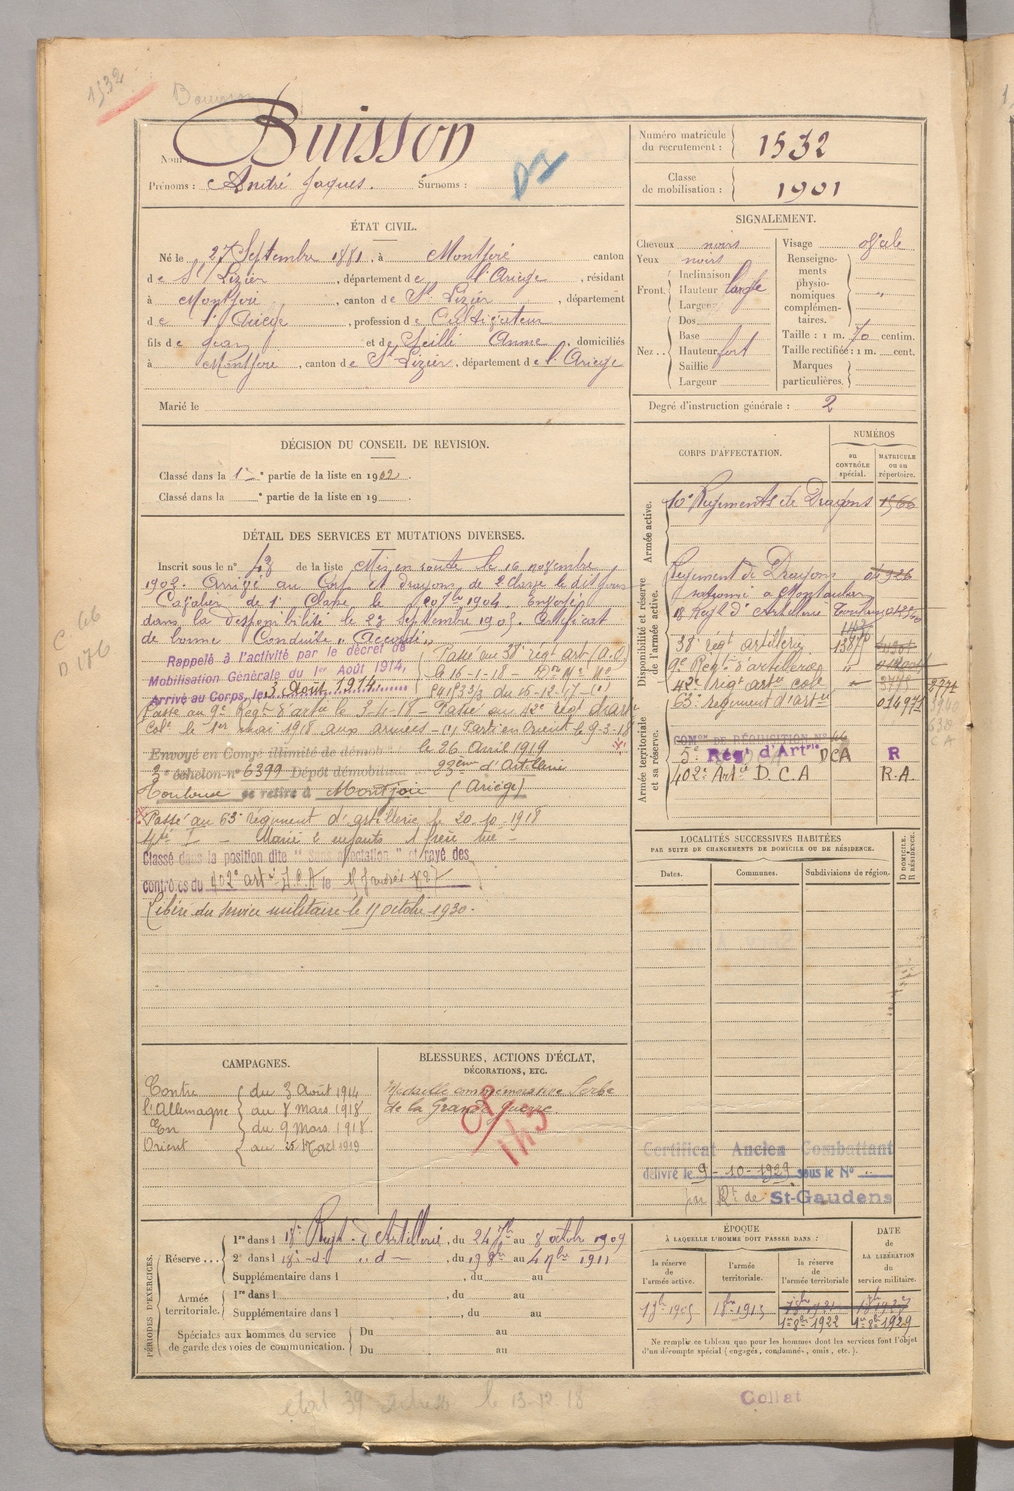 1532
Nom Buisson
Prénoms : André Jaques. Surnoms :
Numéro matricule du recrutement : 1532
Classe de mobilisation : 1901
ÉTAT CIVIL.
Né le 27 Septembre 1881, à Montjoie canton
de St Lizier, département de l'Ariège, résidant
à Montjoie, canton de St Lizier, département
de l'Ariège, profession de Cultivateur
fils de Jean et de Seillé Anne, domiciliés
à Montjoie, canton de St Lizier, département de l'Ariège
Marié le
SIGNALEMENT.
Cheveux noirs
Yeux noirs
Front. Inclinaison
Hauteur large
Largeur
Nez.. Dos
Base
Hauteur fort
Saillie
Largeur
Visage ovale
Renseignements physionomiques complémentaires. "
Taille : 1 m. 70 centim.
Taille rectifiée : 1 m. cent.
Marques particulières.
Degré d'instruction générale : 2
DÉCISION DU CONSEIL DE REVISION.
Classé dans la 1e partie de la liste en 1902
Classé dans la e partie de la liste en 19
DÉTAIL DES SERVICES ET MUTATIONS DIVERSES.
Inscrit sous le n° 43 de la liste Mis en route le 16 novembre
1902. Arrivé au Corps et dragons de 2 Classe le dit jour
Cavalier de 1e Classe le 1904 Envoyé
dans la disponibilité le 23 Septembre 1905. Certificat
de bonne Conduite " Accordé "
Rappelé à l'activité par le décret de
Mobilisation Générale du 1er Août 1914,
Arrivé au Corps, le 3 Août 1914
Passé au 38e régt art (A.O)
le 16-1-18 -
du 16-12-17 -(1)
Passé au 9e Régt d'artie le 3-4-18 - Passé au 42e régt d'art
Cole le 1er mai 1918 aux armées - (1) Parti en Orient le 9-3-18
Envoyé en Congé illimité de démob le 26 Avril 1919
3e échelon n° 6399 Dépôt démobilisateur 23eme d'Artillerie
Toulouse se retire à Montjoie (Ariège)
Passé au 63e régiment d'artillerie le 20-10-1918
Marié 2 enfants 1 frère tué -
Classé dans la position dite "sans affectation" et rayé des
contrôles du 402e artie D.C.A le 15 Janvier 1927
Libéré du service militaire le 1 octobre 1930.
CORPS D'AFFECTATION.
NUMÉROS
au CONTRÔLE spécial.
MATRICULE ou au répertoire.
Armée active.
10e Régiments de Dragons 1566
Disponibilité et réserve de l'armée active.
Régiment de Dragons
stationné à Montauban
18 Régt d'Artillerie Toulouse
38e régt artillerie
9e Régt d'artillerie "
42e régt artie cole "
63e régiment d'artie 01497
Armée territoriale et sa réserve.
COMon DE RÉQUISITION N°
5e Régt d'Artrie DCA R
402e Artie D.C.A R.A.
LOCALITÉS SUCCESSIVES HABITÉES
PAR SUITE DE CHANGEMENTS DE DOMICILE OU DE RÉSIDENCE.
Dates. Communes. Subdivisions de région.
D DOMICILE. R RÉSIDENCE.
C. 66
D 176
CAMPAGNES.
Contre l'Allemagne du 3 Août 1914 au 8 Mars 1918
En Orient du 9 Mars 1918 au 25 Mars 1919
BLESSURES, ACTIONS D'ÉCLAT,
DÉCORATIONS, ETC.
Médaille commémorative Serbe
de la Grande Guerre
Certificat Ancien Combattant
délivré le 9-10-1929 sous le N° ..
par Ct de St-Gaudens
PÉRIODES D'EXERCICES.
Réserve... 1re dans l 18e Régt d'Artillerie, du 24 7bre au 8 octobre 1909
2e dans l 18e -d- "d-, du au 4 9bre 1911
Supplémentaire dans l , du au
Armée territoriale. 1re dans l , du au
Supplémentaire dans l , du au
Spéciales aux hommes du service de garde des voies de communication. Du au
Du au
ÉPOQUE
À LAQUELLE L'HOMME DOIT PASSER DANS :
la réserve de l'armée active.
l'armée territoriale.
la réserve de l'armée territoriale
DATE DE LA LIBÉRATION du service militaire.
1905 1915 1922 1929
Ne remplir ce tableau que pour les hommes dont les services font l'objet
d'un décompte spécial (engagés, condamnés, omis, etc.).
état 39 adressé le 13-12-18
Collat